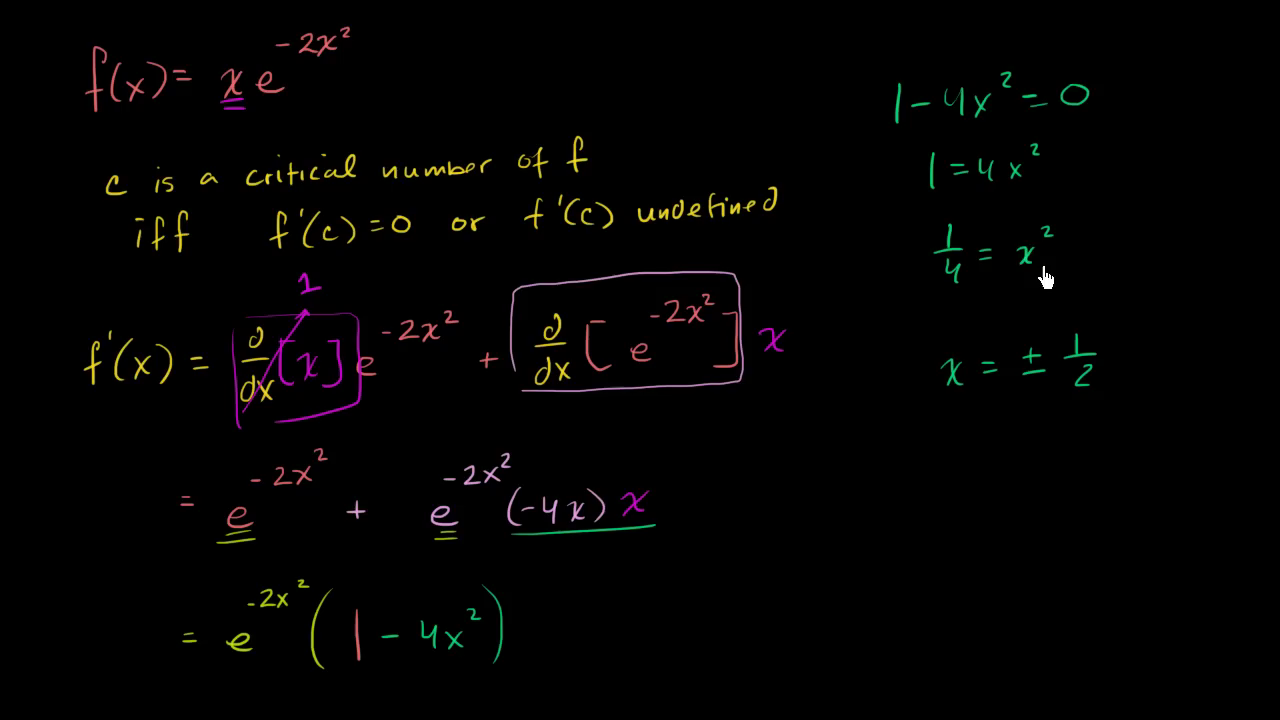 f(x) = x e^{-2x^2}
c is a critical number of f
iff f'(c) = 0 or f'(c) undefined
1
f'(x) = d/dx [x] e^{-2x^2} + d/dx [e^{-2x^2}] x
= e^{-2x^2} + e^{-2x^2} (-4x) x
= e^{-2x^2} (1 - 4x^2)
1 - 4x^2 = 0
1 = 4x^2
1/4 = x^2
x = ± 1/2